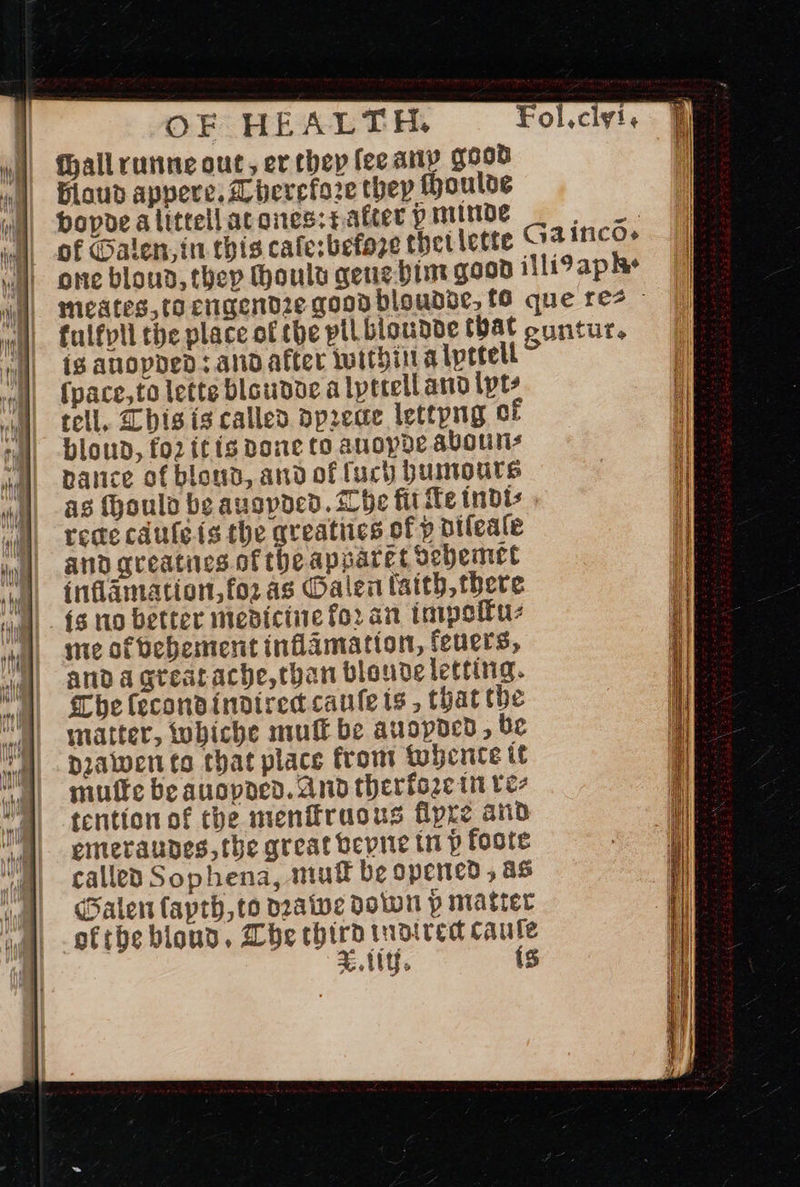 OF HEALTH. Fol.clvi.
ſhall runne out, er they ſee any good
bloud appere. Therefoꝛe they ſhoulde
voyde a littell at ones: ⁊ after þͤ minde
of Galen, in this caſe: befoꝛe thei lette
one bloud, they ſhould geue him good
meates, to engendꝛe good bloudde, to
fulfyll the place of the yll bloudde that
is auoyded: and after within a lyttell
ſpace, to lette bloudde a lyttell and lyt⸗
tell. This is called dyꝛecte lettyng of
bloud, foꝛ it is done to auoyde aboun⸗
dance of bloud, and of ſuch humours
as ſhould be auoyded. The firſte indi⸗
recte cauſe is the greatnes of þͤ diſeaſe
and greatnes of the apparēt vehemēt
inflāmation, foꝛ as Galen ſaith, there
is no better medicine foꝛ an impoſtu⸗
me of vehement inflāmation, feuers,
and a great ache, than bloude letting.
The ſecond indirect cauſe is, that the
matter, whiche muſt be auoyded, be
dꝛawen to that place from whence it
muſte be auoyded. And therfoꝛe in re⸗
tention of the menſtruous flyxe and
emeraudes, the great veyne in þͤ foote
called Sophena, muſt be opened, as
Galen ſayth, to dꝛawe down þͤ matter
of the bloud. The third indirect cauſe
X.iiij. is
Ga incō.
illi⁹ aph.
que re⸗
puntur.